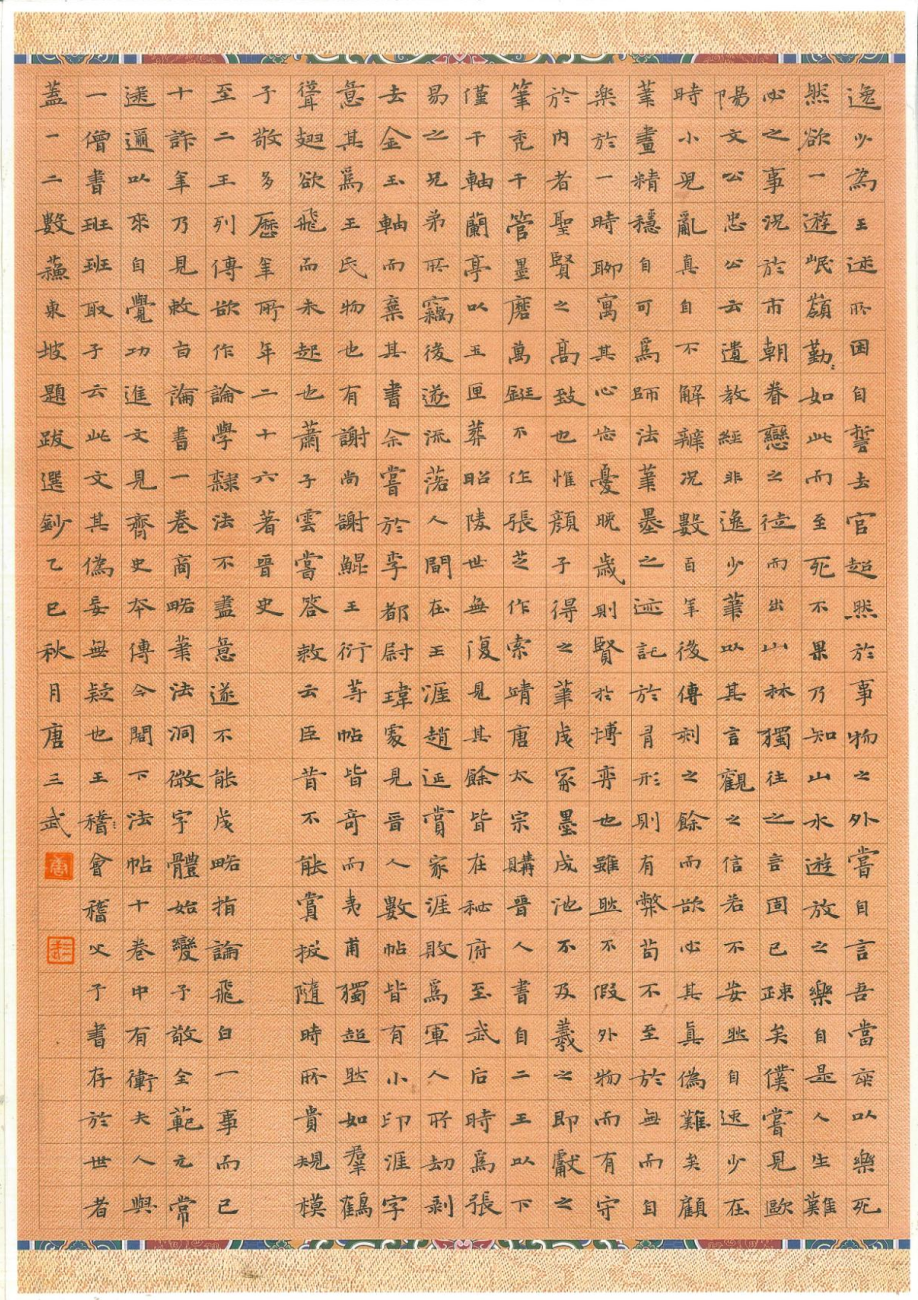 逸少為王述所困自誓去官超然於事物之外嘗自言吾當卒以樂死
然欲一遊岷嶺勤勤如此而至死不果乃知山水遊放之樂自是人生難
必之事況於市朝眷戀之徒而出山林獨往之言固已疎矣僕嘗見歐
陽文公忠公云遺教經非逸少筆以其言觀之信若不妄然自逸少在
時小兒亂真自不解辯況數百年後傳刻之餘而欲必其真偽難矣顧
筆畫精穩自可爲師法筆墨之迹記於有形則有弊苟不至於無而自
樂於一時聊寓其心忘憂晚歲則賢於博弈也雖然不假外物而有守
於內者聖賢之高致也惟顏子得之筆成冢墨成池不及羲之即獻之
筆禿千管墨磨萬鋌不作張芝作索靖唐太宗購晉人書自二王以下
僅千軸蘭亭以玉匣葬昭陵世無復見其餘皆在秘府至武后時爲張
易之兄弟所竊後遂流落人間在王涯趙延賞家涯敗爲軍人所劫剥
去金玉軸而棄其書余嘗於李都尉瑋處見晉人數帖皆有小印涯字
意其爲王氏物也有謝尚謝鯤王衍等帖皆奇而夷甫獨超然如羣鶴
聳翅欲飛而未起也蕭子雲嘗答敕云臣昔不能賞拔隨時所貴規模
子敬多歷年所年二十六著晉史
至二王列傳欲作論學隸法不盡意遂不能成略指論飛白一事而已
十許年乃見敕旨論書一卷商略筆法洞徹字體始變子敬全範元常
逮邇以來自覺功進文見齊史本傳今閣下法帖十卷中有衛夫人與
一僧書班班取子云此文其偽妄無疑也王會稽父子書存於世者
蓋一二數蘇東坡題跋選鈔乙巳秋月唐三武